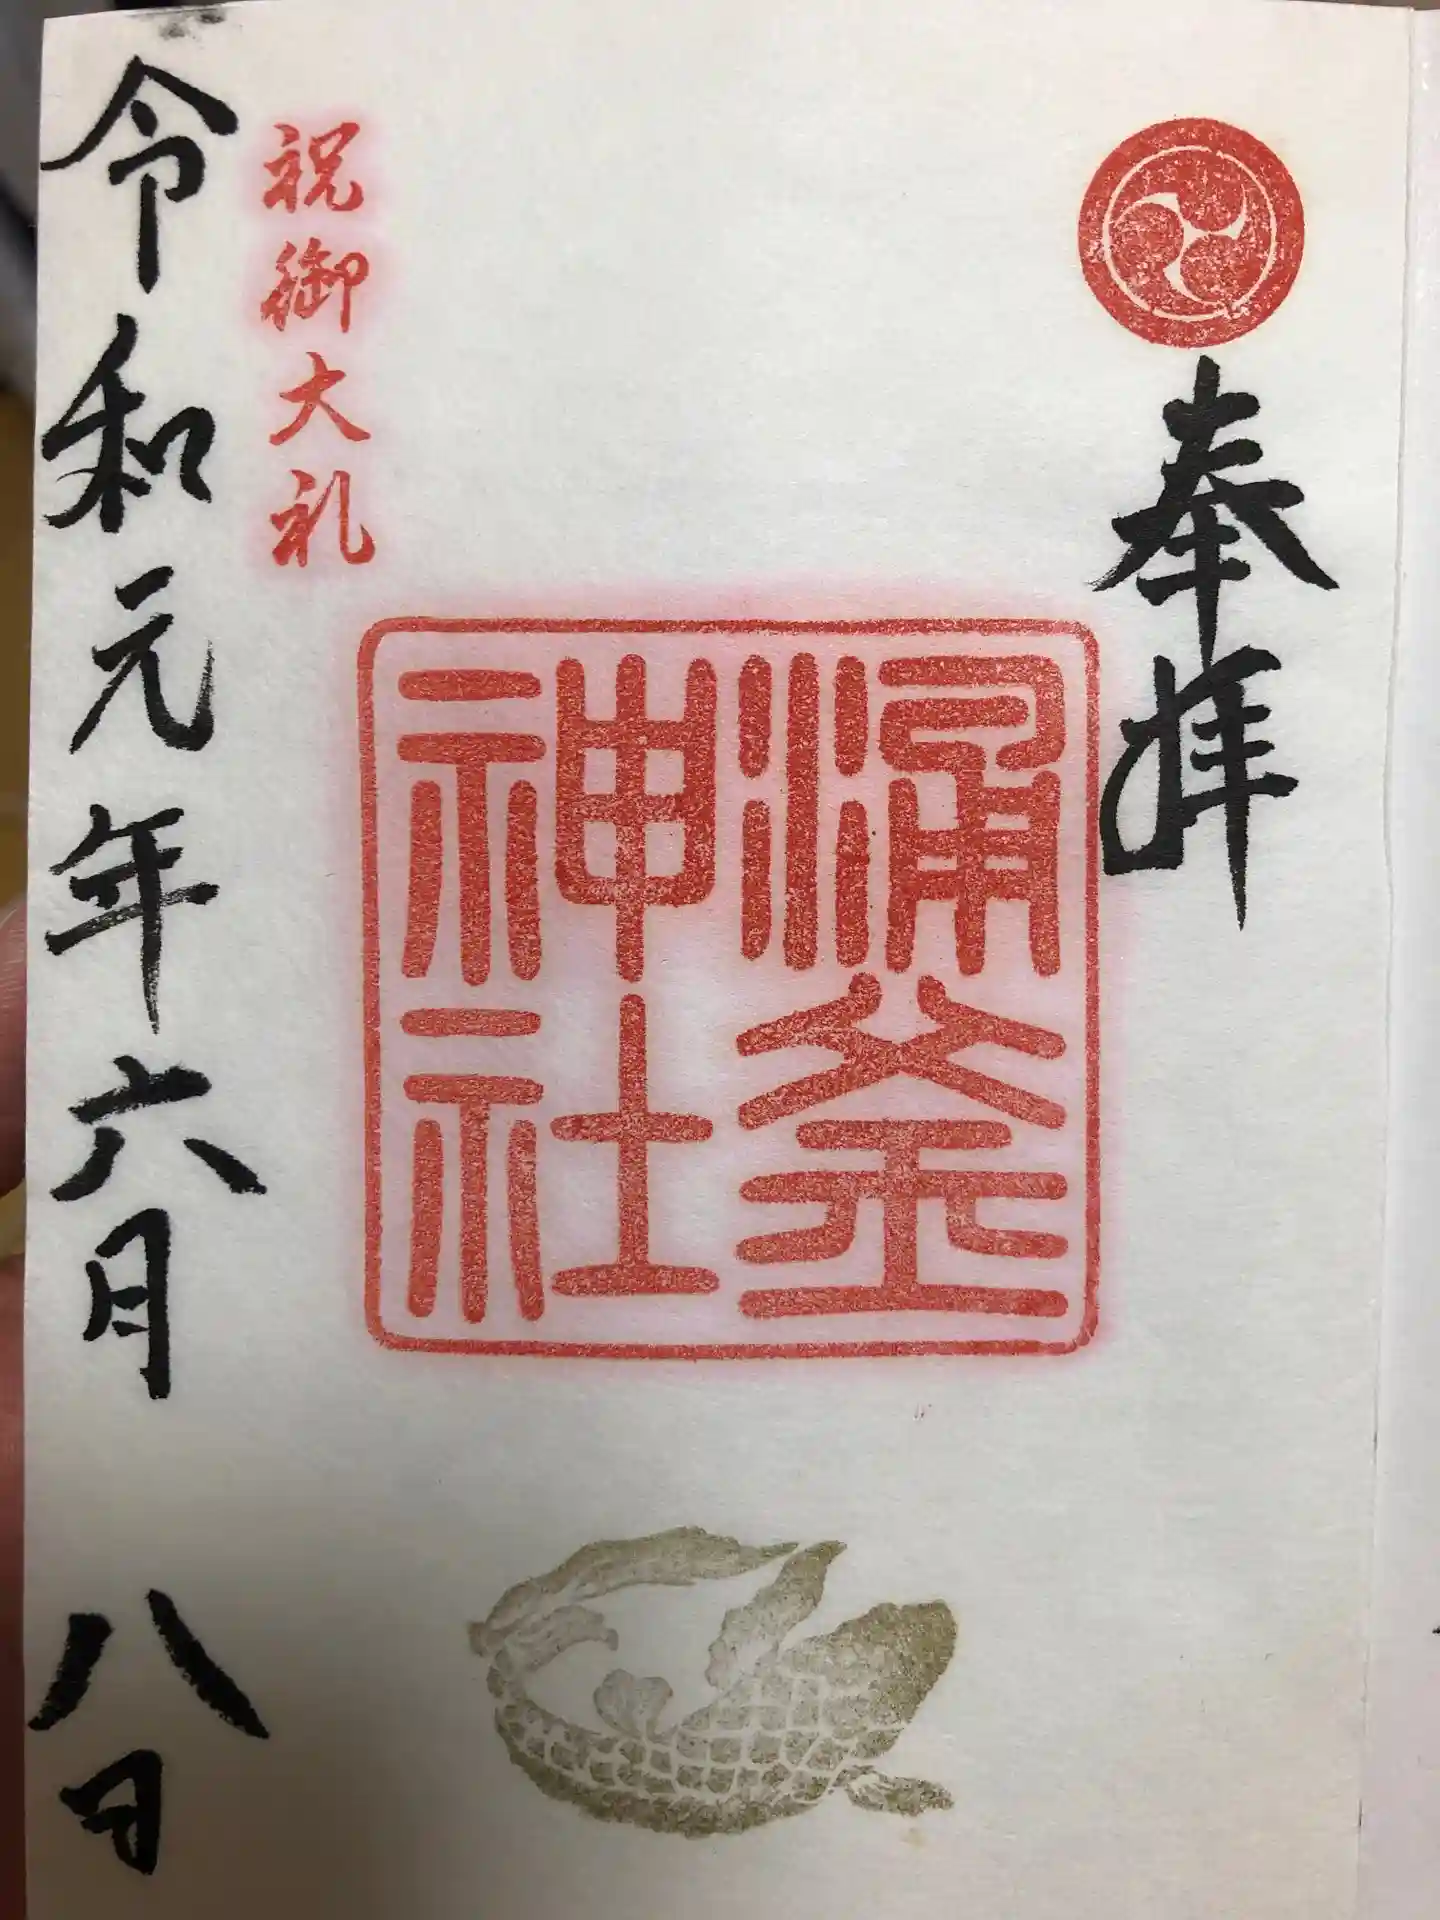 奉拝
涌釜
神社
祝御大礼
令和元年六月八日